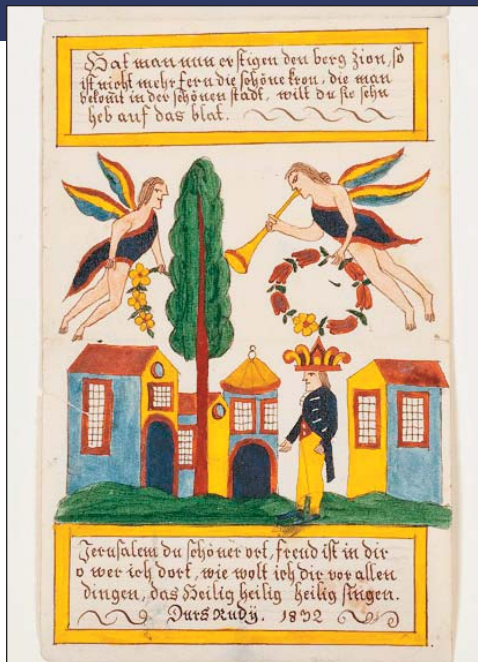 Hat man nun erstigen den berg zion, so
ist nicht mehr fern die schöne kron, die man
bekomt in der schönen stadt, wilt du sie sehn
heb auf das blat.
Jerusalem du schöner ort, freud ist in dir
o wer ich dort, wie wolt ich dir vor allen
dingen, das Heilig heilig heilig singen.
Durs Rudÿ. 1832